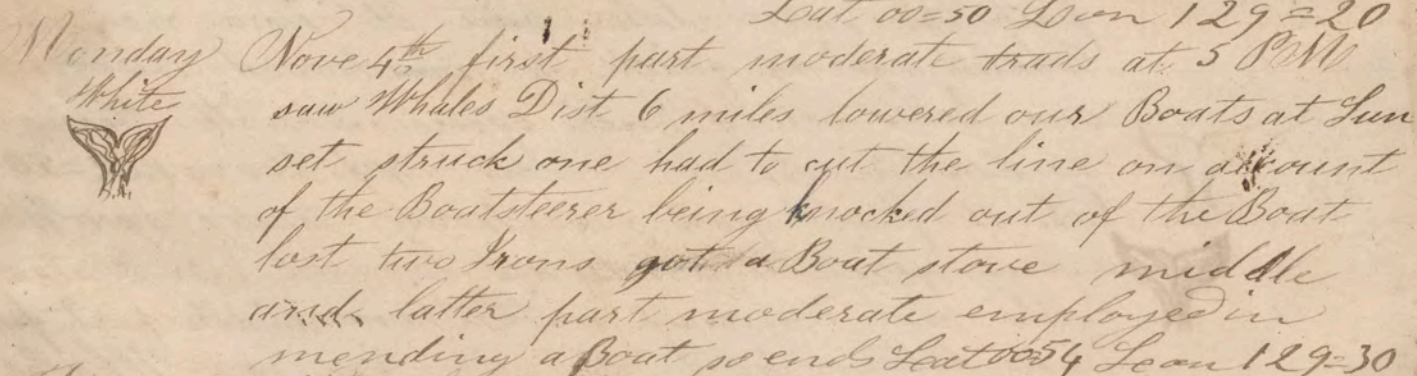 Lat 00=50 Loon 129=20
Monday Nove 4th first part moderate trads at 5 PM
White saw Whales Dist 6 miles lowered our Boats at Sun
set struck one had to cut the line on account
of the Boatsteerer being knocked out of the Boat
lost two Irons got a Boat stove middle
and latter part moderate employed in
mending a Boat so ends Lat 00=54 Loon 129=30